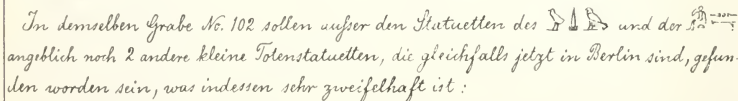 In demselben Grabe No. 102 sollen außer den Statuetten des und der
angeblich noch 2 andere kleine Totenstatuetten, die gleichfalls jetzt in Berlin sind, gefun-
den worden sein, was indessen sehr zweifelhaft ist: